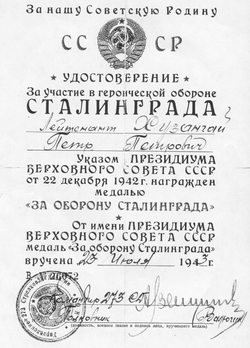 За нашу Советскую Родину
СС СР
★ УДОСТОВЕРЕНИЕ ★
За участие в героической обороне
СТАЛИНГРАДА
Лейтенант Хузангай
Петр Петрович
Указом ПРЕЗИДИУМА
ВЕРХОВНОГО СОВЕТА СССР
от 22 декабря 1942 г. награжден
медалью
«ЗА ОБОРОНУ СТАЛИНГРАДА»
★
От имени ПРЕЗИДИУМА
ВЕРХОВНОГО СОВЕТА СССР
медаль «За оборону Сталинграда»
вручена 23 Июля 1943 г.
Командир 273 СП
Полковник